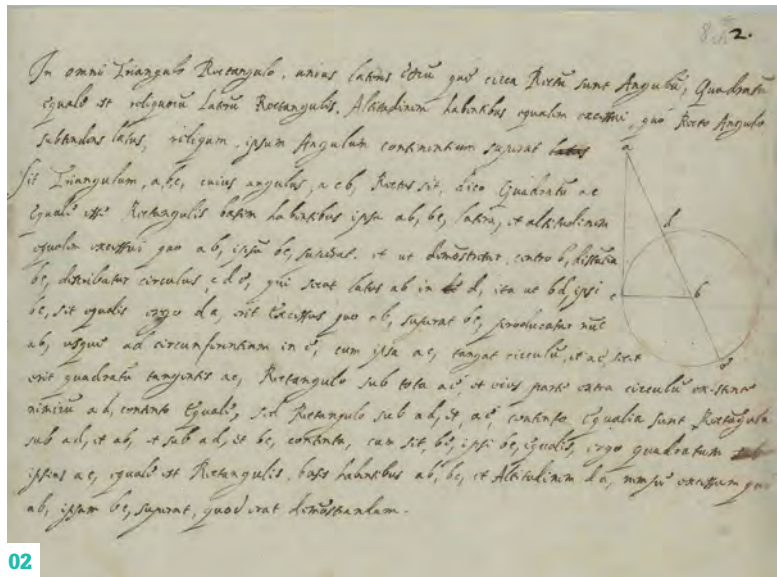 2.
In omni Triangulo Rectangulo, unius laterū quę circa Rectū sunt Angulū, Quadratū
equale est reliquorū laterū Rectangulis, Altitudinem habentibus equalem excessui, quo Recto Angulo
subtendens latus, reliquum, ipsum Angulum continentium superat
Sit Triangulum, abc, cuius angulus, acb, Rectus sit, dico Quadratū ac
equale esse Rectangulis basim habentibus ipsa ab, bc, latera, et altitudinem
equalem excessui quo ab, ipsū bc, superat. et ut demōstretur, centro b, distantia
bc, describatur circulus, cde, qui secet latus ab in d, ita ut bd, ipsi
bc, sit equalis ergo da, erit Excessus quo ab, superat bc, producatur nūc
ab, usque ad circumferentiam in e, cum ipsa ac, tangat circulū, et ae, secet
erit quadratū tangentis ac, Rectangulo sub tota ae, et eius parte extra circulū existente
nimirū ad, contento Equale, sed Rectangulo sub ad, et, ae, contento Equalia sunt Rectangula
sub ad, et ab, et sub ad, et bc, contenta, cum sit, be, ipsi bc, Equalis, ergo quadratum
ipsius ac, equale est Rectangulis, bases habentibus ab, bc, et Altitudinem da, excessum quo
ab, ipsum bc, superat, quod erat demōstrandum.
a
d
c
b
e
02